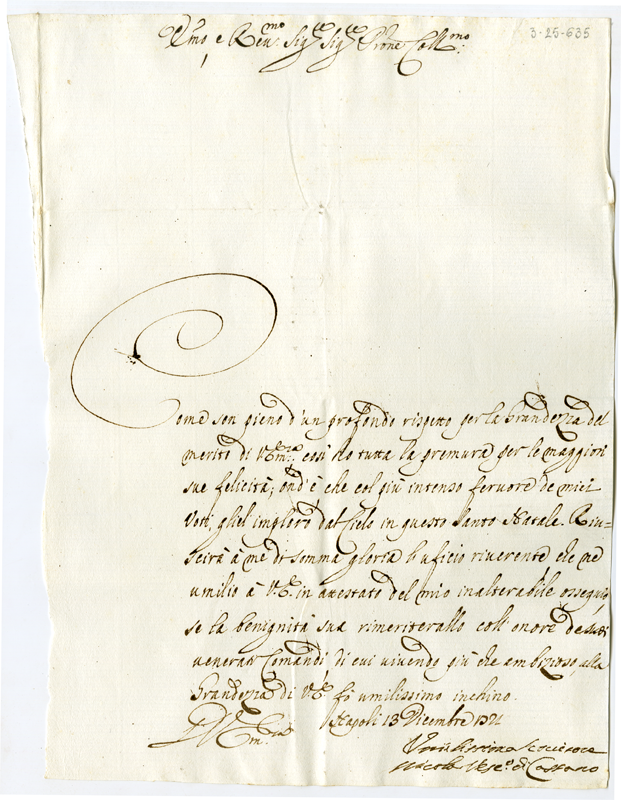 Emo e Reu.mo Sig.re Sig.re Prone Coll.mo
3-25-635
Come son pieno d'un profondo rispetto per la Grandezza del
merito di V. Em.za cosi hò tutta la premura per le maggiori
sue felicità; ond'è che col più intenso feruore de miei
Voti gliel'imploro dal Cielo in questo Santo Natale. Riu=
scirà à me di somma gloria l'uficio riuerente, che ne
umilio à V.E. in attestato del mio inalterabile ossequio,
se la benignità sua rimeriterallo coll'onore de suoi
venerati Comandi, di cui vivendo più che ambizioso, alla
Grandezza di V.E. fò umilissimo inchino.
Napoli 13 Dicembre
D V Em.za
di Cassano